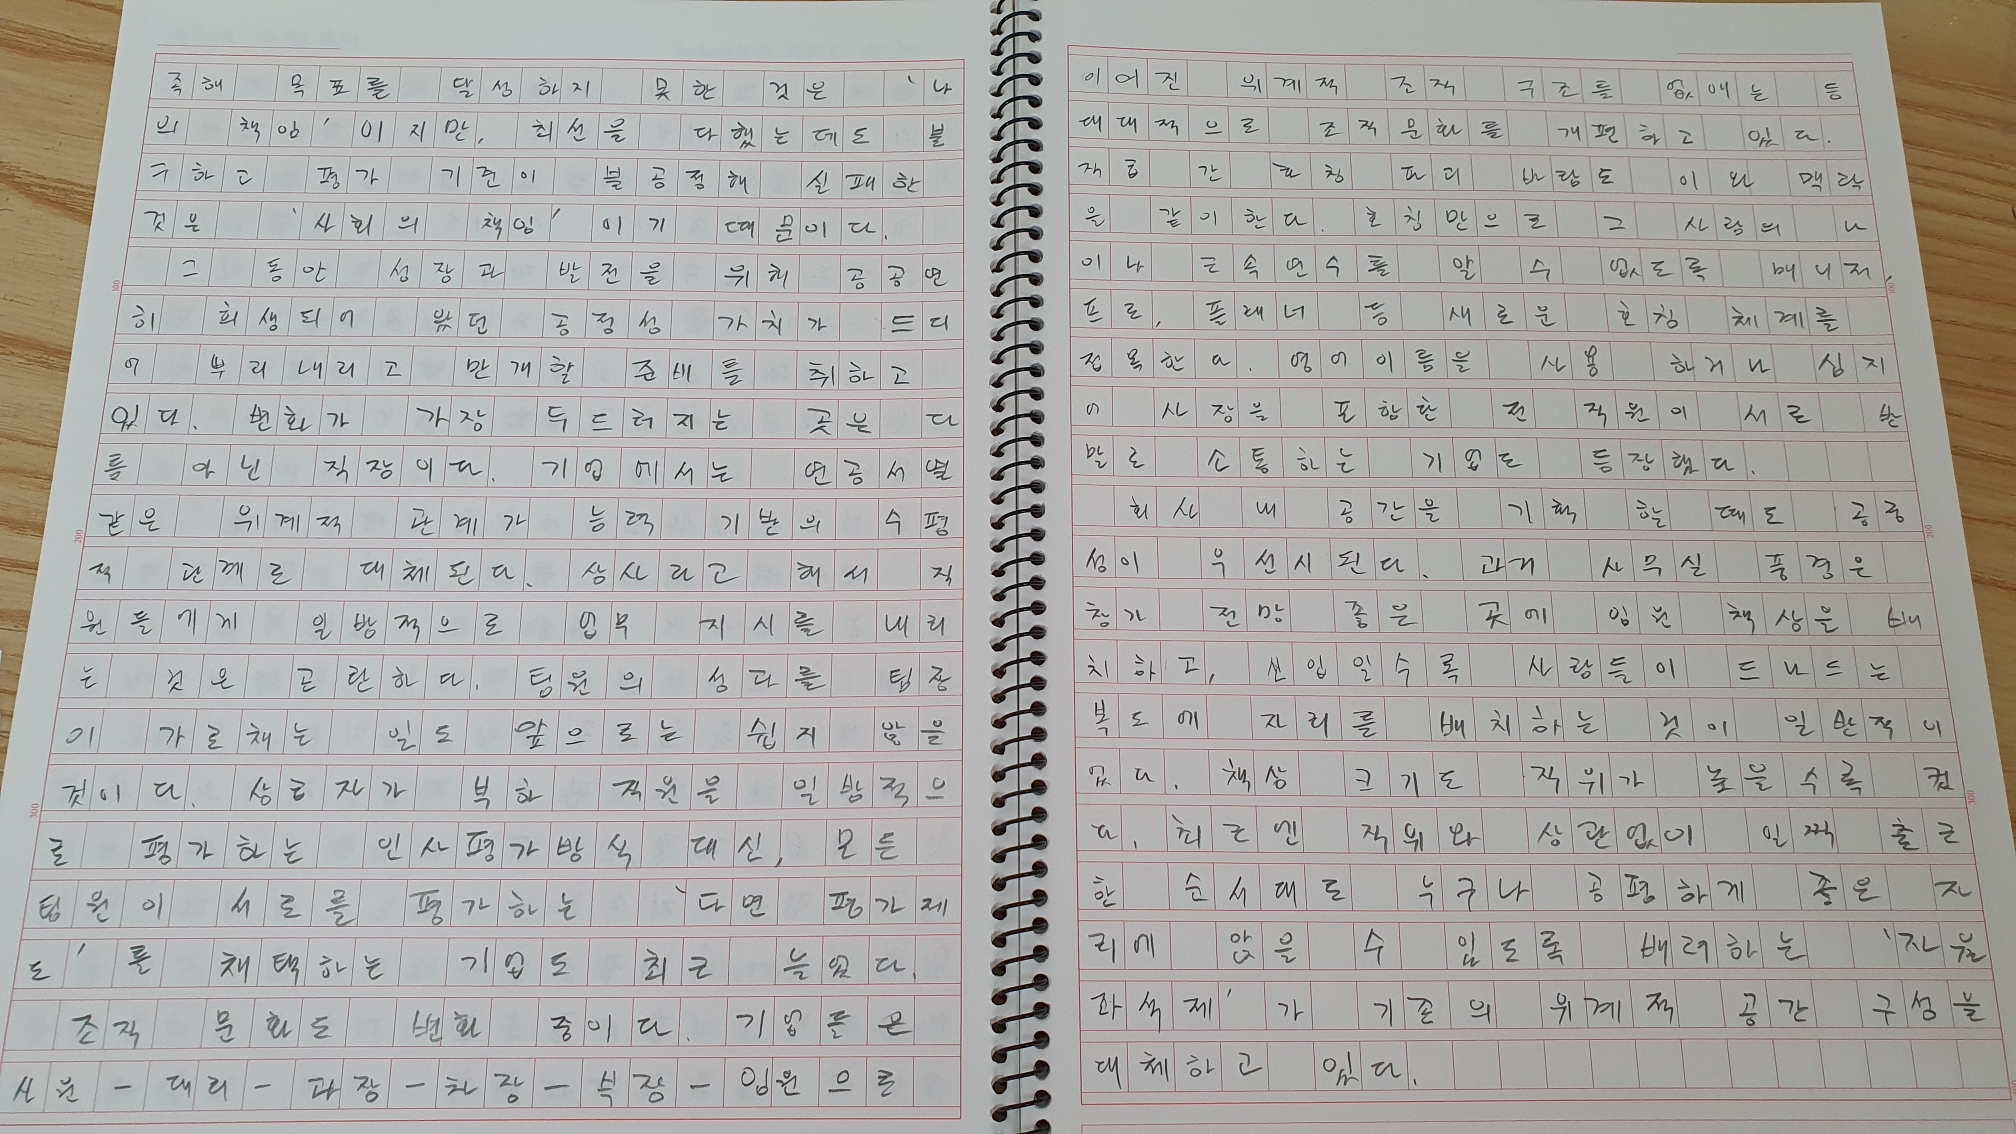 족해 목표를 달성하지 못한 것은 '나
의 책임'이지만, 최선을 다했는데도 불
구하고 평가 기준이 불공정해 실패한
것은 '사회의 책임'이기 때문이다.
그 동안 성장과 발전을 위해 공공연
히 희생되어 왔던 공정성 가치가 드디
어 뿌리내리고 만개할 준비를 취하고
있다. 변화가 가장 두드러지는 곳은 다
름 아닌 직장이다. 기업에서는 연공서열
같은 위계적 관계가 능력 기반의 수평
적 관계로 대체된다. 상사라고 해서 직
원들에게 일방적으로 업무 지시를 내리
는 것은 곤란하다. 팀원의 성과를 팀장
이 가로채는 일도 앞으로는 쉽지 않을
것이다. 상급자가 부하 직원을 일방적으
로 평가하는 인사평가방식 대신, 모든
팀원이 서로를 평가하는 '다면 평가제
도'를 채택하는 기업도 최근 늘었다.
조직 문화도 변화 중이다. 기업들은
사원-대리-과장-차장-부장-임원으로
이어진 위계적 조직 구조를 없애는 등
대대적으로 조직문화를 개편하고 있다.
직급 간 호칭 파괴 바람도 이와 맥락
을 같이한다. 호칭만으로 그 사람의 나
이나 근속연수를 알 수 없도록 매니저,
프로, 플래너 등 새로운 호칭 체계를
접목한다. 영어이름을 사용 하거나 심지
어 사장을 포함한 전 직원이 서로 반
말로 소통하는 기업도 등장했다.
회사 내 공간을 기획 할 때도 공정
성이 우선시된다. 과거 사무실 풍경은
창가 전망 좋은 곳에 임원 책상을 배
치하고, 신입일수록 사람들이 드나드는
복도에 자리를 배치하는 것이 일반적이
었다. 책상 크기도 직위가 높을수록 컸
다. 최근엔 직위와 상관없이 일찍 출근
한 순서대로 누구나 공평하게 좋은 자
리에 앉을 수 있도록 배려하는 '자율
좌석제'가 기존의 위계적 공간 구성을
대체하고 있다.